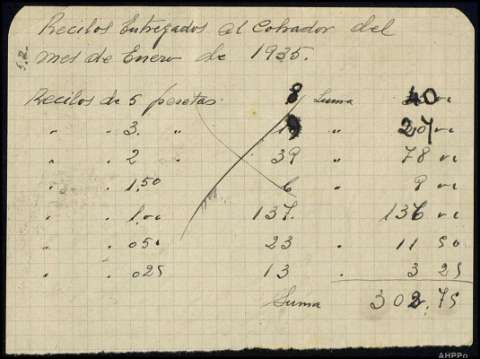 Recibos Entregados al Cobrador del
mes de Enero de 1935.
Recibos de 5 pesetas 8 Suma 40
" " 3. " 9 "
" " 2 " 39 " 78 00
" " 1,50 6 " 9 00
" " 1,00 137. 136 00
" " 050 23 " 11 50
" " 025 13 " 3 25
Suma 302,75
AHPPo